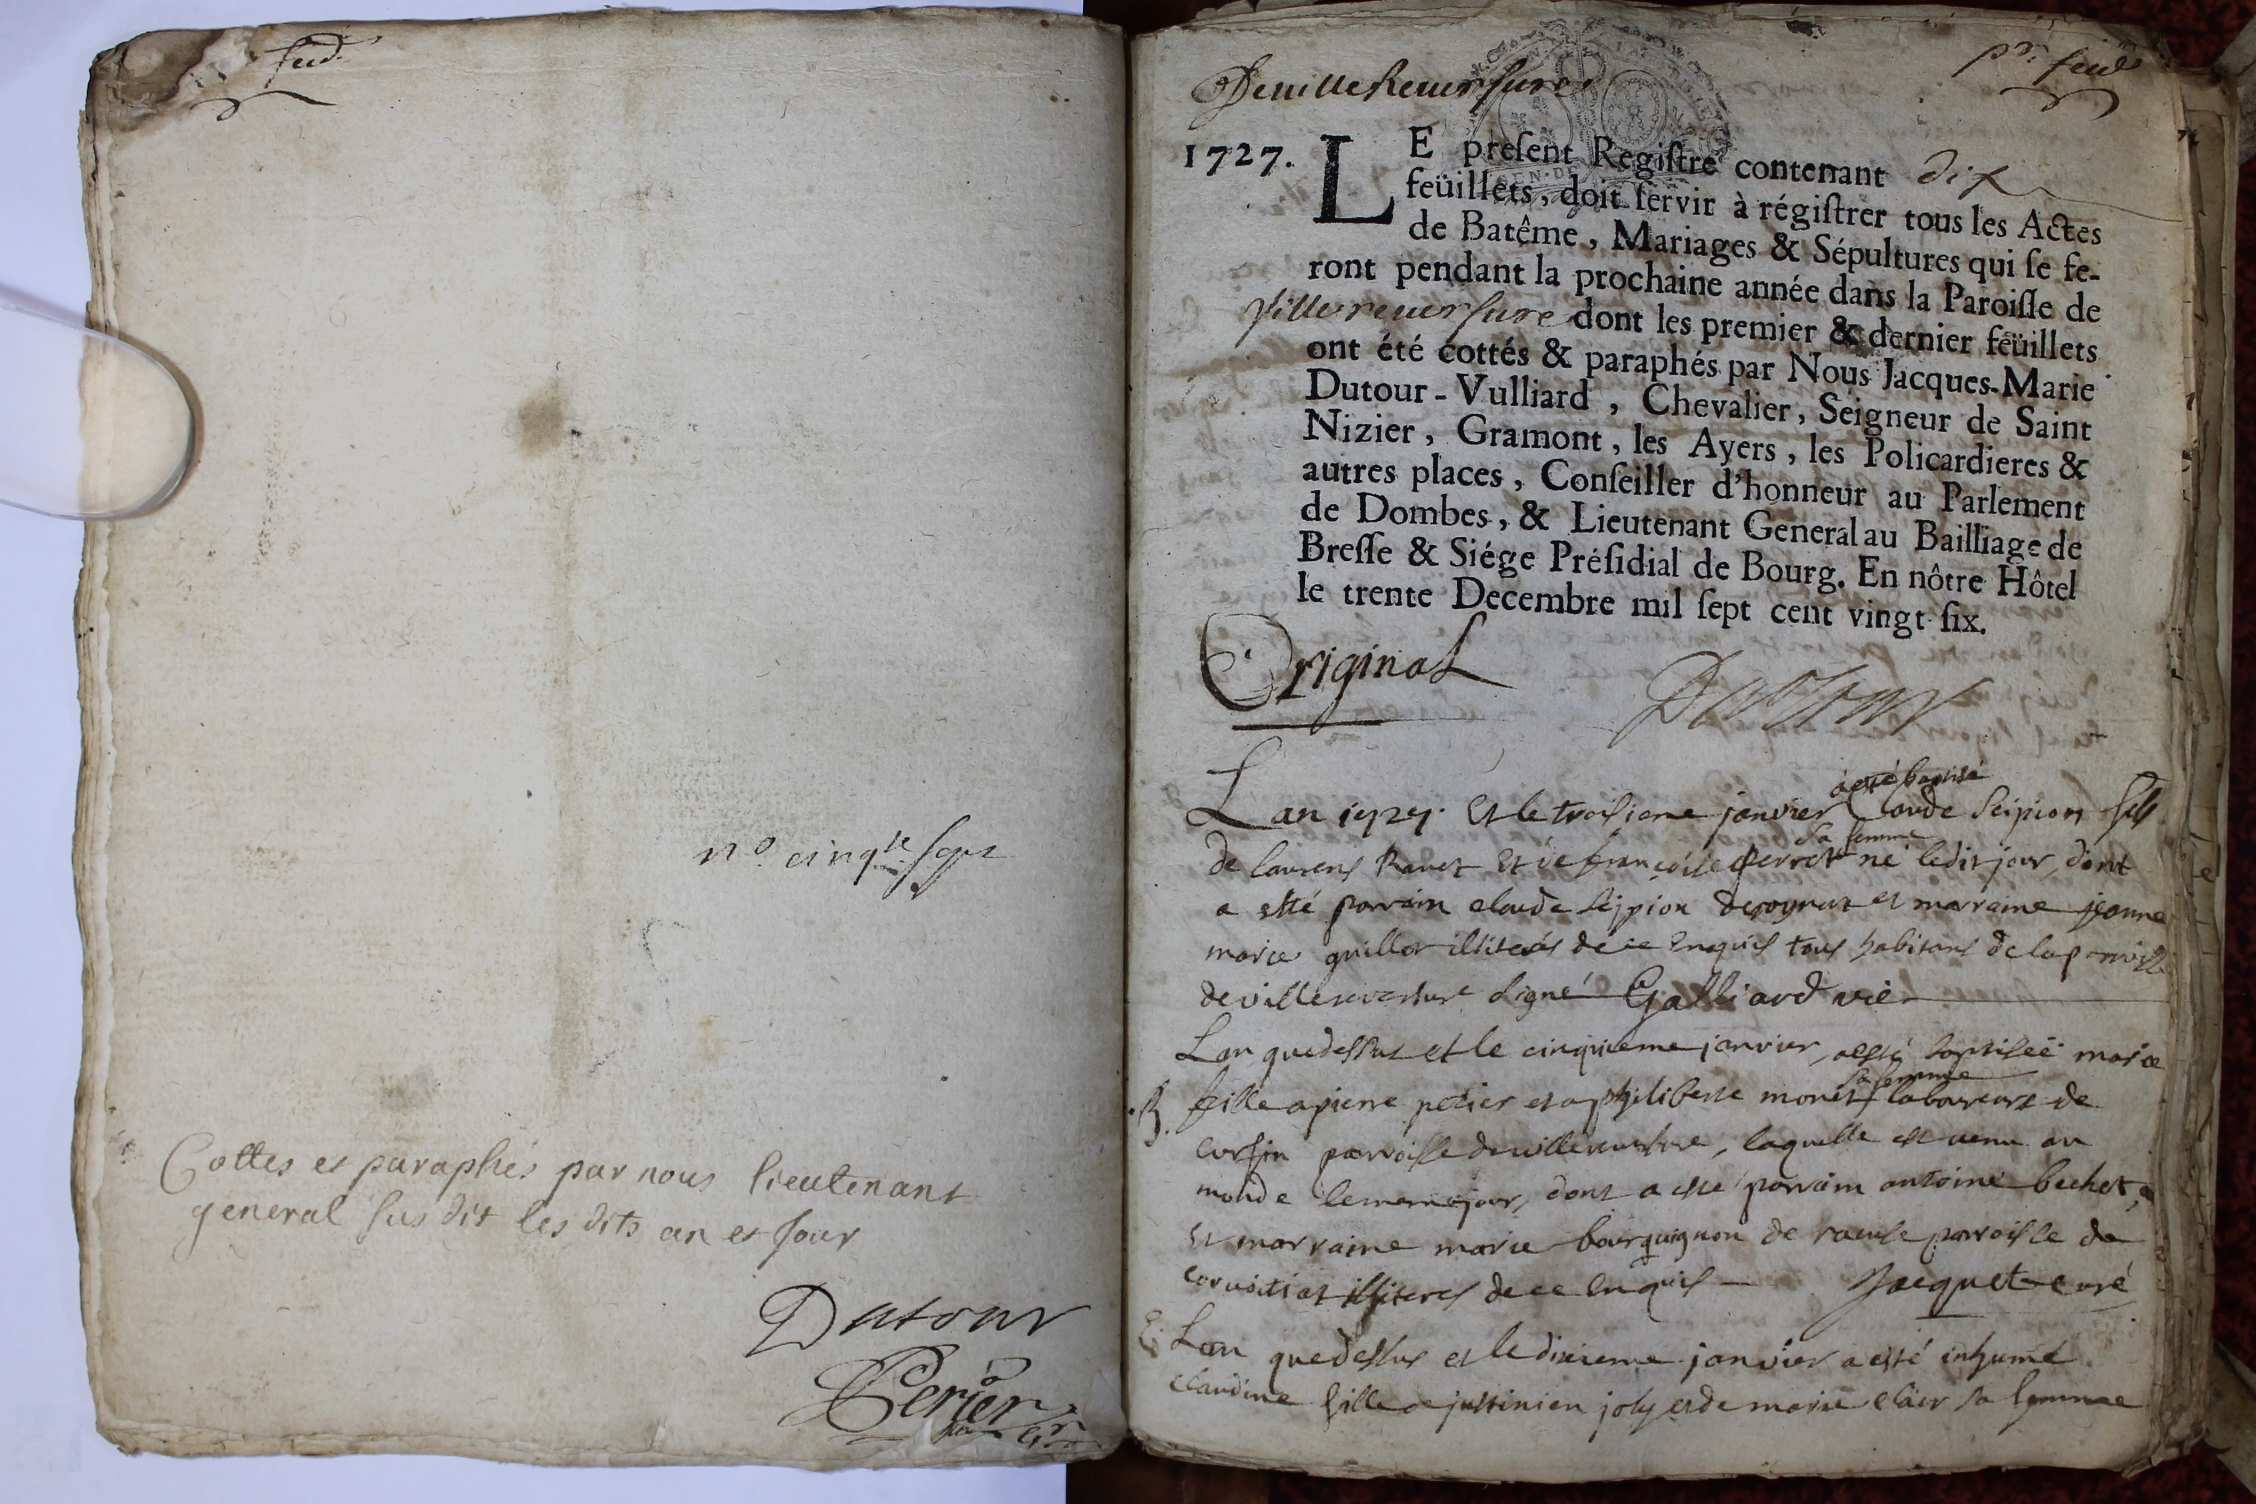 feud.
no. cinqte sept
Cottes et paraphés par nous lieutenant
general susdit les dits an et jour
Dutour
Perier
pr. feud.
De villereversure
1727. LE present Registre contenant dix
feüillets, doit servir à régistrer tous les Actes
de Batême, Mariages & Sépultures qui se fe-
ront pendant la prochaine année dans la Paroisse de
Villereversure dont les premier & dernier feüillets
ont été cottés & paraphés par Nous Jacques-Marie
Dutour-Vulliard, Chevalier, Seigneur de Saint
Nizier, Gramont, les Ayers, les Policardieres &
autres places, Conseiller d'honneur au Parlement
de Dombes, & Lieutenant General au Bailliage de
Bresse & Siége Présidial de Bourg. En nôtre Hôtel
le trente Decembre mil sept cent vingt six.
Original
Dutour
a esté baptisé
Lan 1727. Et le troisieme janvier Claude Scipion fils
sa femme
de laurens Ravet Et de françoise perret né ledit jour, dont
a esté parrain claude scipion et marraine jeanne
marie guillot illiterés de ce Enquis tous habitans de la parroisse
de villereversure signé Galliard vic.
Lan quedessus et le cinquieme janvier, a esté baptiseé marie
sa femme
B. fille a pierre perier et a philiberte monet laboureurs de
parroisse de villereversure, laquelle est venu au
monde le meme jour, dont a esté parrain antoine bechet,
Et marraine marie bourguignon de parroisse de
illiteres de ce Enquis Jacquet curé
E. Lan quedessus et le dixieme janvier a esté inhumé
claudine fille de justinien joly et de marie clair sa femme